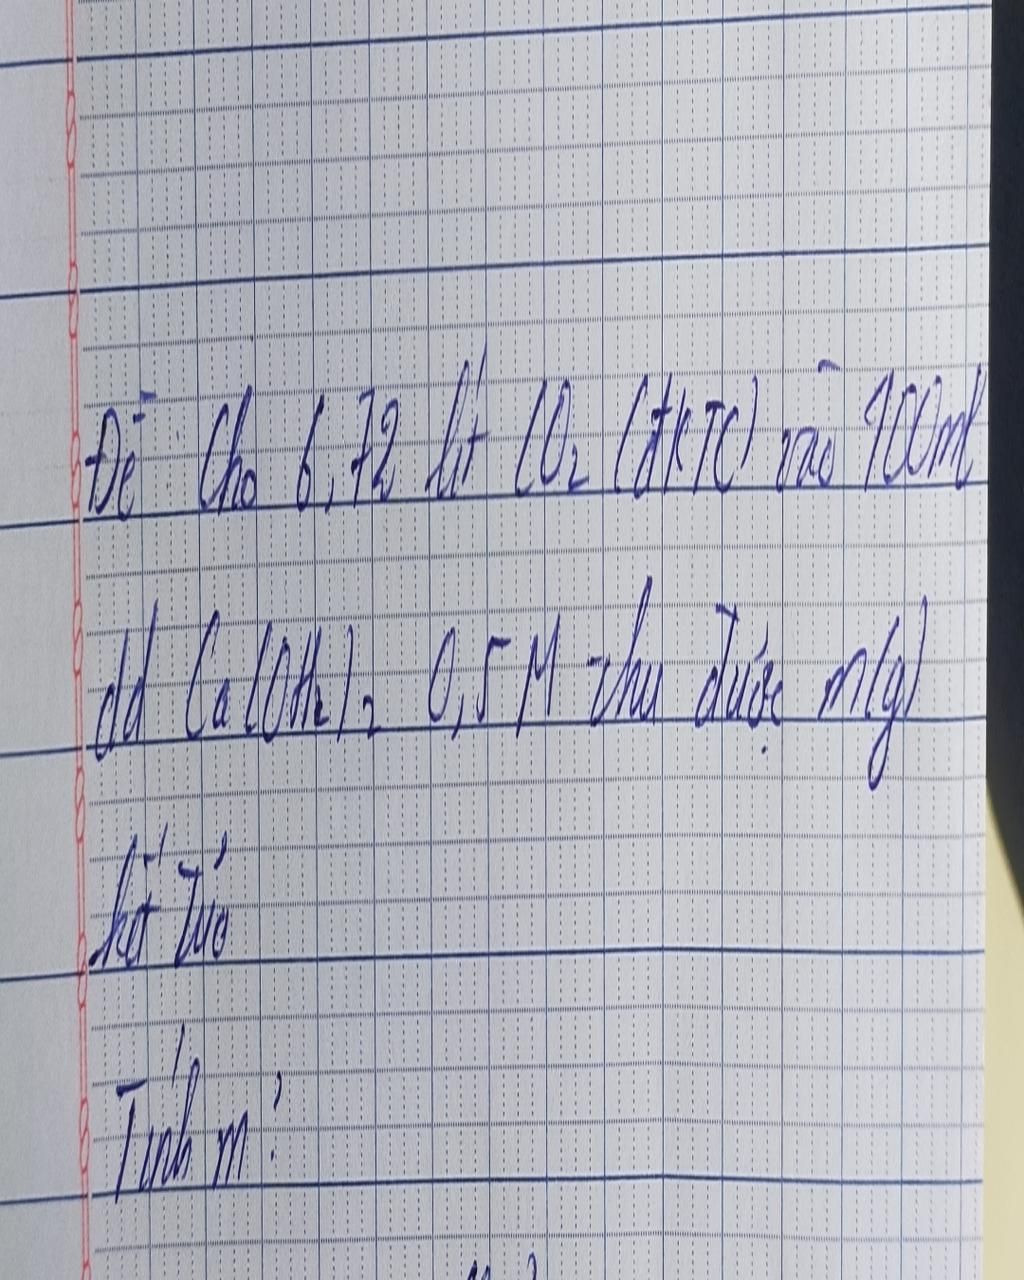 Đề: Cho 6,72 lít CO₂ (đktc) vào 100ml
dd Ca(OH₂)₂ 0,5M thu được m(g)
kết tủa
Tính m?